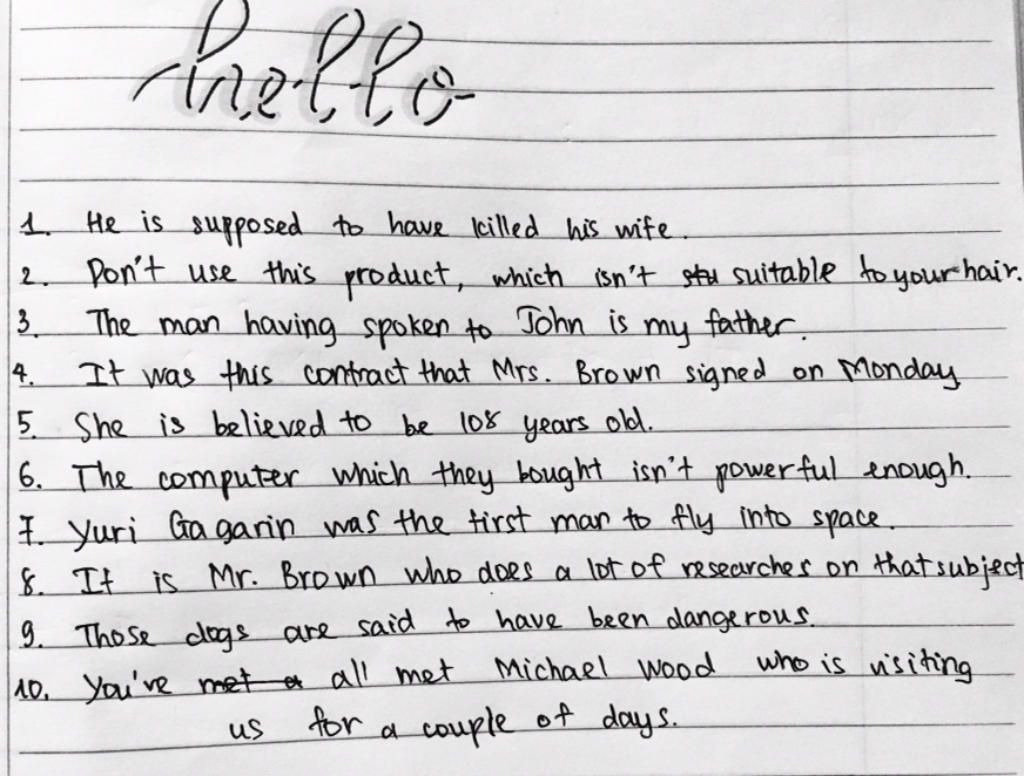 hello
1. He is supposed to have killed his wife.
2. Don't use this product, which isn't stu suitable to your hair.
3. The man having spoken to John is my father.
4. It was this contract that Mrs. Brown signed on Monday
5. She is believed to be 108 years old.
6. The computer which they bought isn't powerful enough.
7. Yuri Gagarin was the first man to fly into space.
8. It is Mr. Brown who does a lot of researches on that subject
9. Those dogs are said to have been dangerous.
10. You've met a all met Michael Wood who is visiting
us for a couple of days.